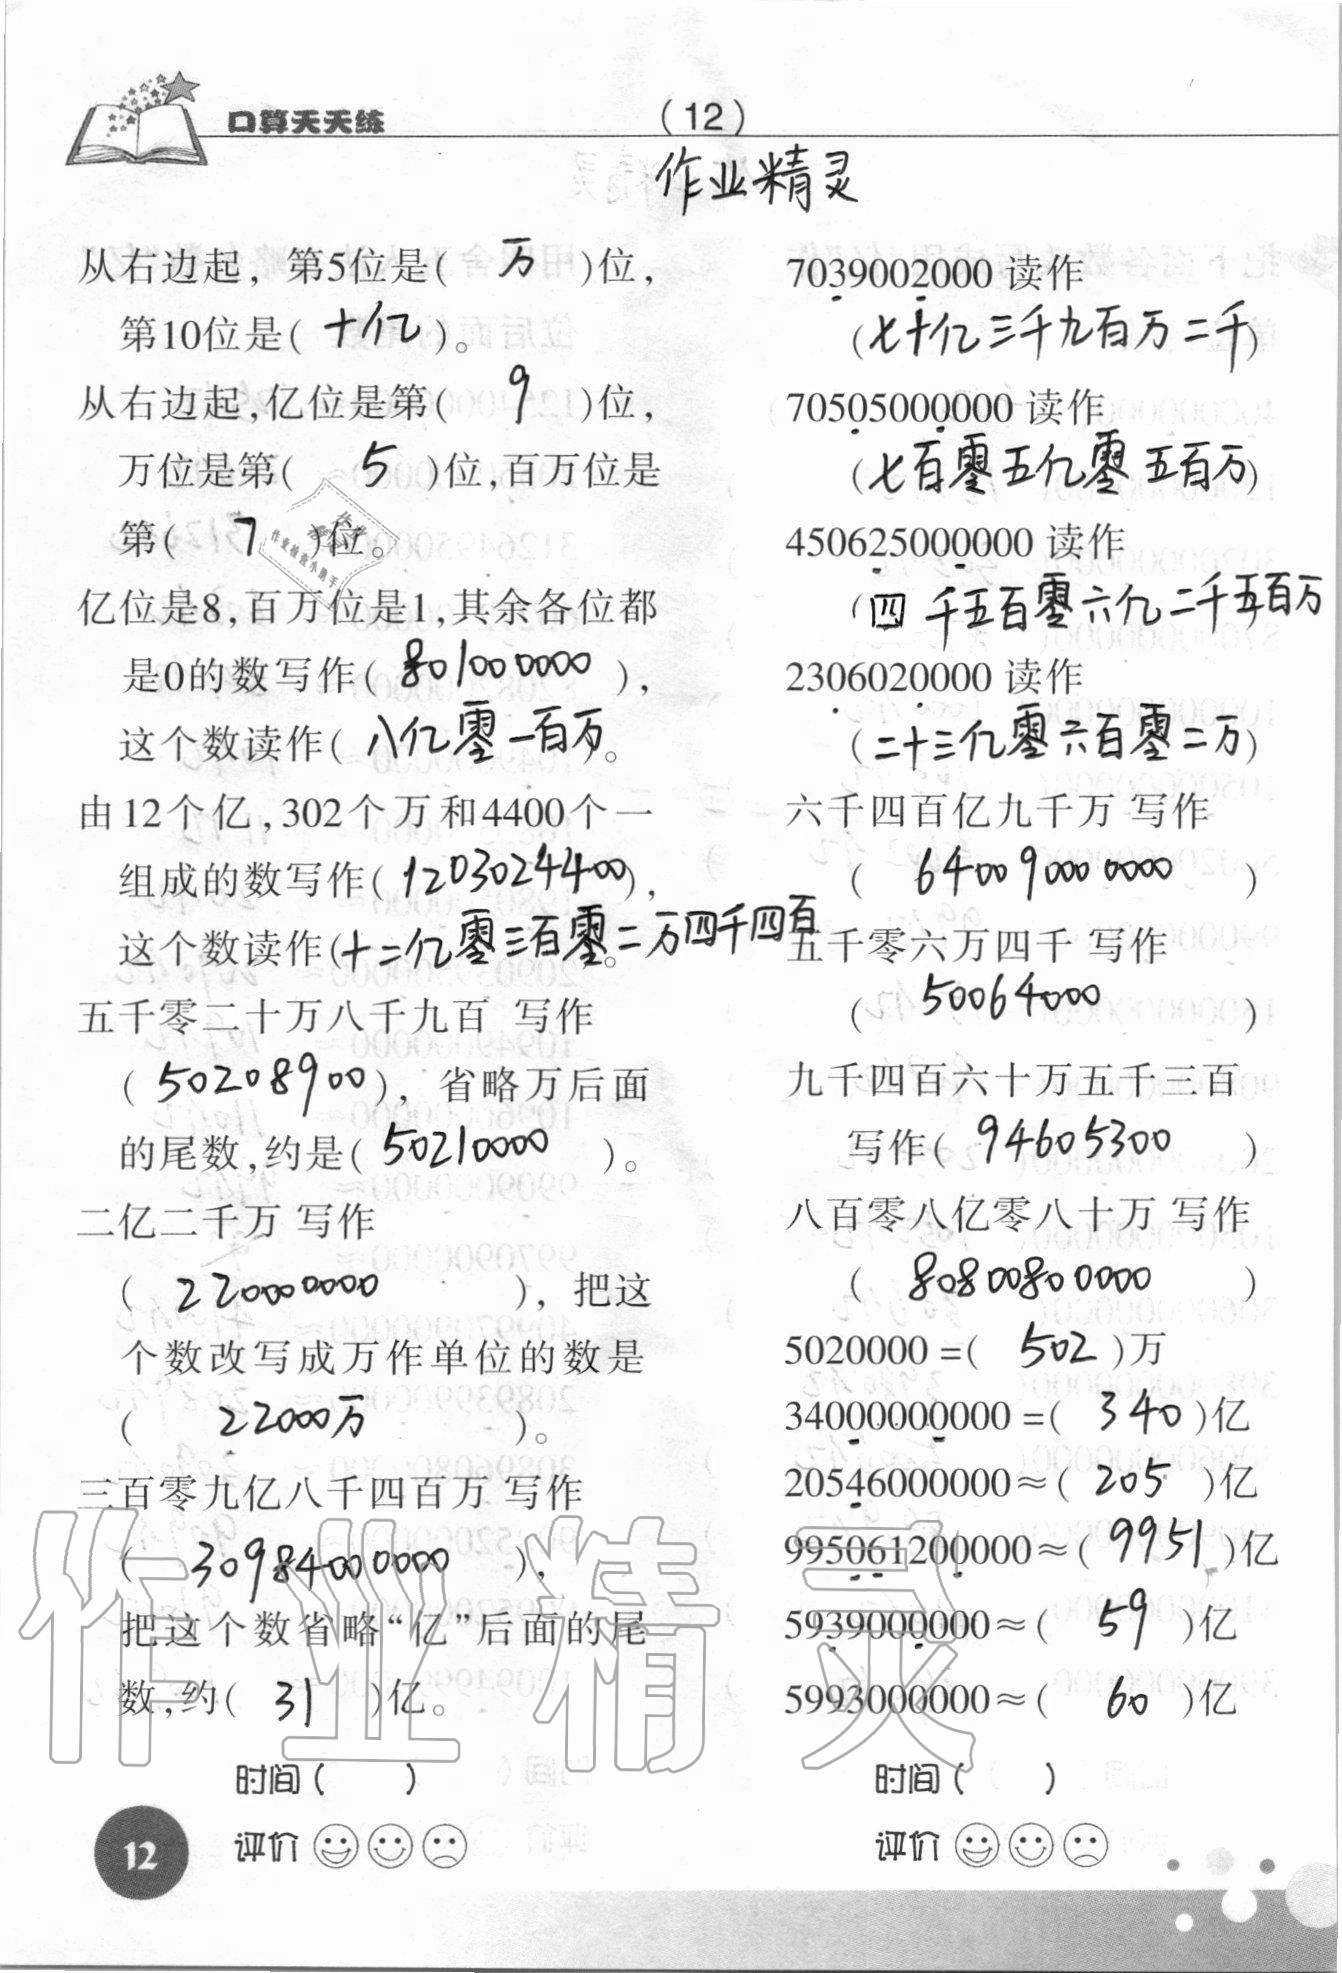 口算天天练
(12)
作业精灵
从右边起，第5位是( 万 )位，
第10位是( 十亿 )。
从右边起，亿位是第( 9 )位，
万位是第( 5 )位，百万位是
第( 7 )位。
亿位是8，百万位是1，其余各位都
是0的数写作( 801000000 )，
这个数读作( 八亿零一百万 )。
由12个亿，302个万和4400个一
组成的数写作( 1203024400 )，
这个数读作(十二亿零三百零二万四千四百)。
五千零二十万八千九百 写作
( 50208900 )，省略万后面
的尾数，约是( 50210000 )。
二亿二千万 写作
( 220000000 )，把这
个数改写成万作单位的数是
( 22000万 )。
三百零九亿八千四百万 写作
( 30984000000 )，
把这个数省略“亿”后面的尾
数，约( 31 )亿。
时间( )
评价
7039002000 读作
(七十亿三千九百万二千)
70505000000 读作
(七百零五亿零五百万)
450625000000 读作
(四千五百零六亿二千五百万
2306020000 读作
(二十三亿零六百零二万)
六千四百亿九千万 写作
( 640090000000 )
五千零六万四千 写作
( 50064000 )
九千四百六十万五千三百
写作( 94605300 )
八百零八亿零八十万 写作
( 80800800000 )
5020000 =( 502 )万
34000000000 =( 340 )亿
20546000000≈( 205 )亿
995061200000≈( 9951 )亿
5939000000≈( 59 )亿
5993000000≈( 60 )亿
时间( )
评价
12
作业精灵